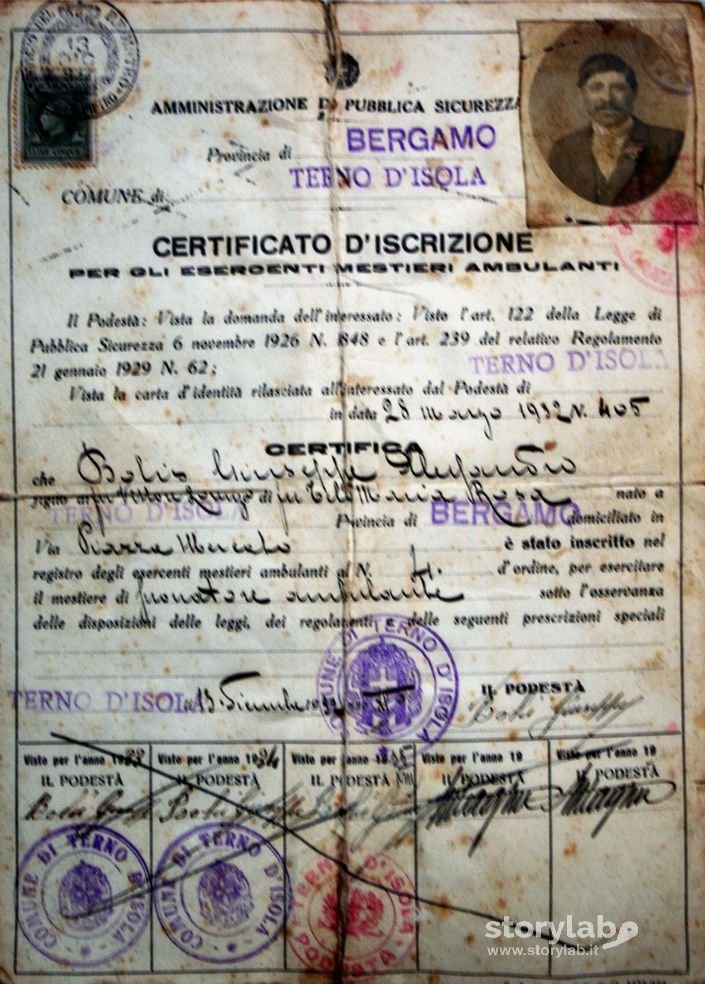 AMMINISTRAZIONE DI PUBBLICA SICUREZZA
Provincia di BERGAMO
COMUNE di TERNO D'ISOLA
CERTIFICATO D'ISCRIZIONE
PER GLI ESERCENTI MESTIERI AMBULANTI
Il Podestà: Vista la domanda dell'interessato: Visto l'art. 122 della Legge di
Pubblica Sicurezza 6 novembre 1926 N. 848 e l'art. 239 del relativo Regolamento
21 gennaio 1929 N. 62;
Vista la carta d'identità rilasciata all'interessato dal Podestà di TERNO D'ISOLA
in data 28 Marzo 1932 N. 405
CERTIFICA
che Bolis Giuseppe
figlio di fu di fu Maria Rosa nato a
TERNO D'ISOLA Provincia di BERGAMO domiciliato in
Via Piazza Mercato è stato inscritto nel
registro degli esercenti mestieri ambulanti al N. d'ordine, per esercitare
il mestiere di suonatore ambulante sotto l'osservanza
delle disposizioni delle leggi, dei regolamenti e delle seguenti prescrizioni speciali
COMUNE DI TERNO D'ISOLA
TERNO D'ISOLA
IL PODESTÀ
Visto per l'anno 1933 Visto per l'anno 1934 Visto per l'anno 1935 Visto per l'anno 19 Visto per l'anno 19
IL PODESTÀ IL PODESTÀ IL PODESTÀ IL PODESTÀ IL PODESTÀ
COMUNE DI TERNO D'ISOLA COMUNE DI TERNO D'ISOLA TERNO D'ISOLA PODESTA
storylab
www.storylab.it